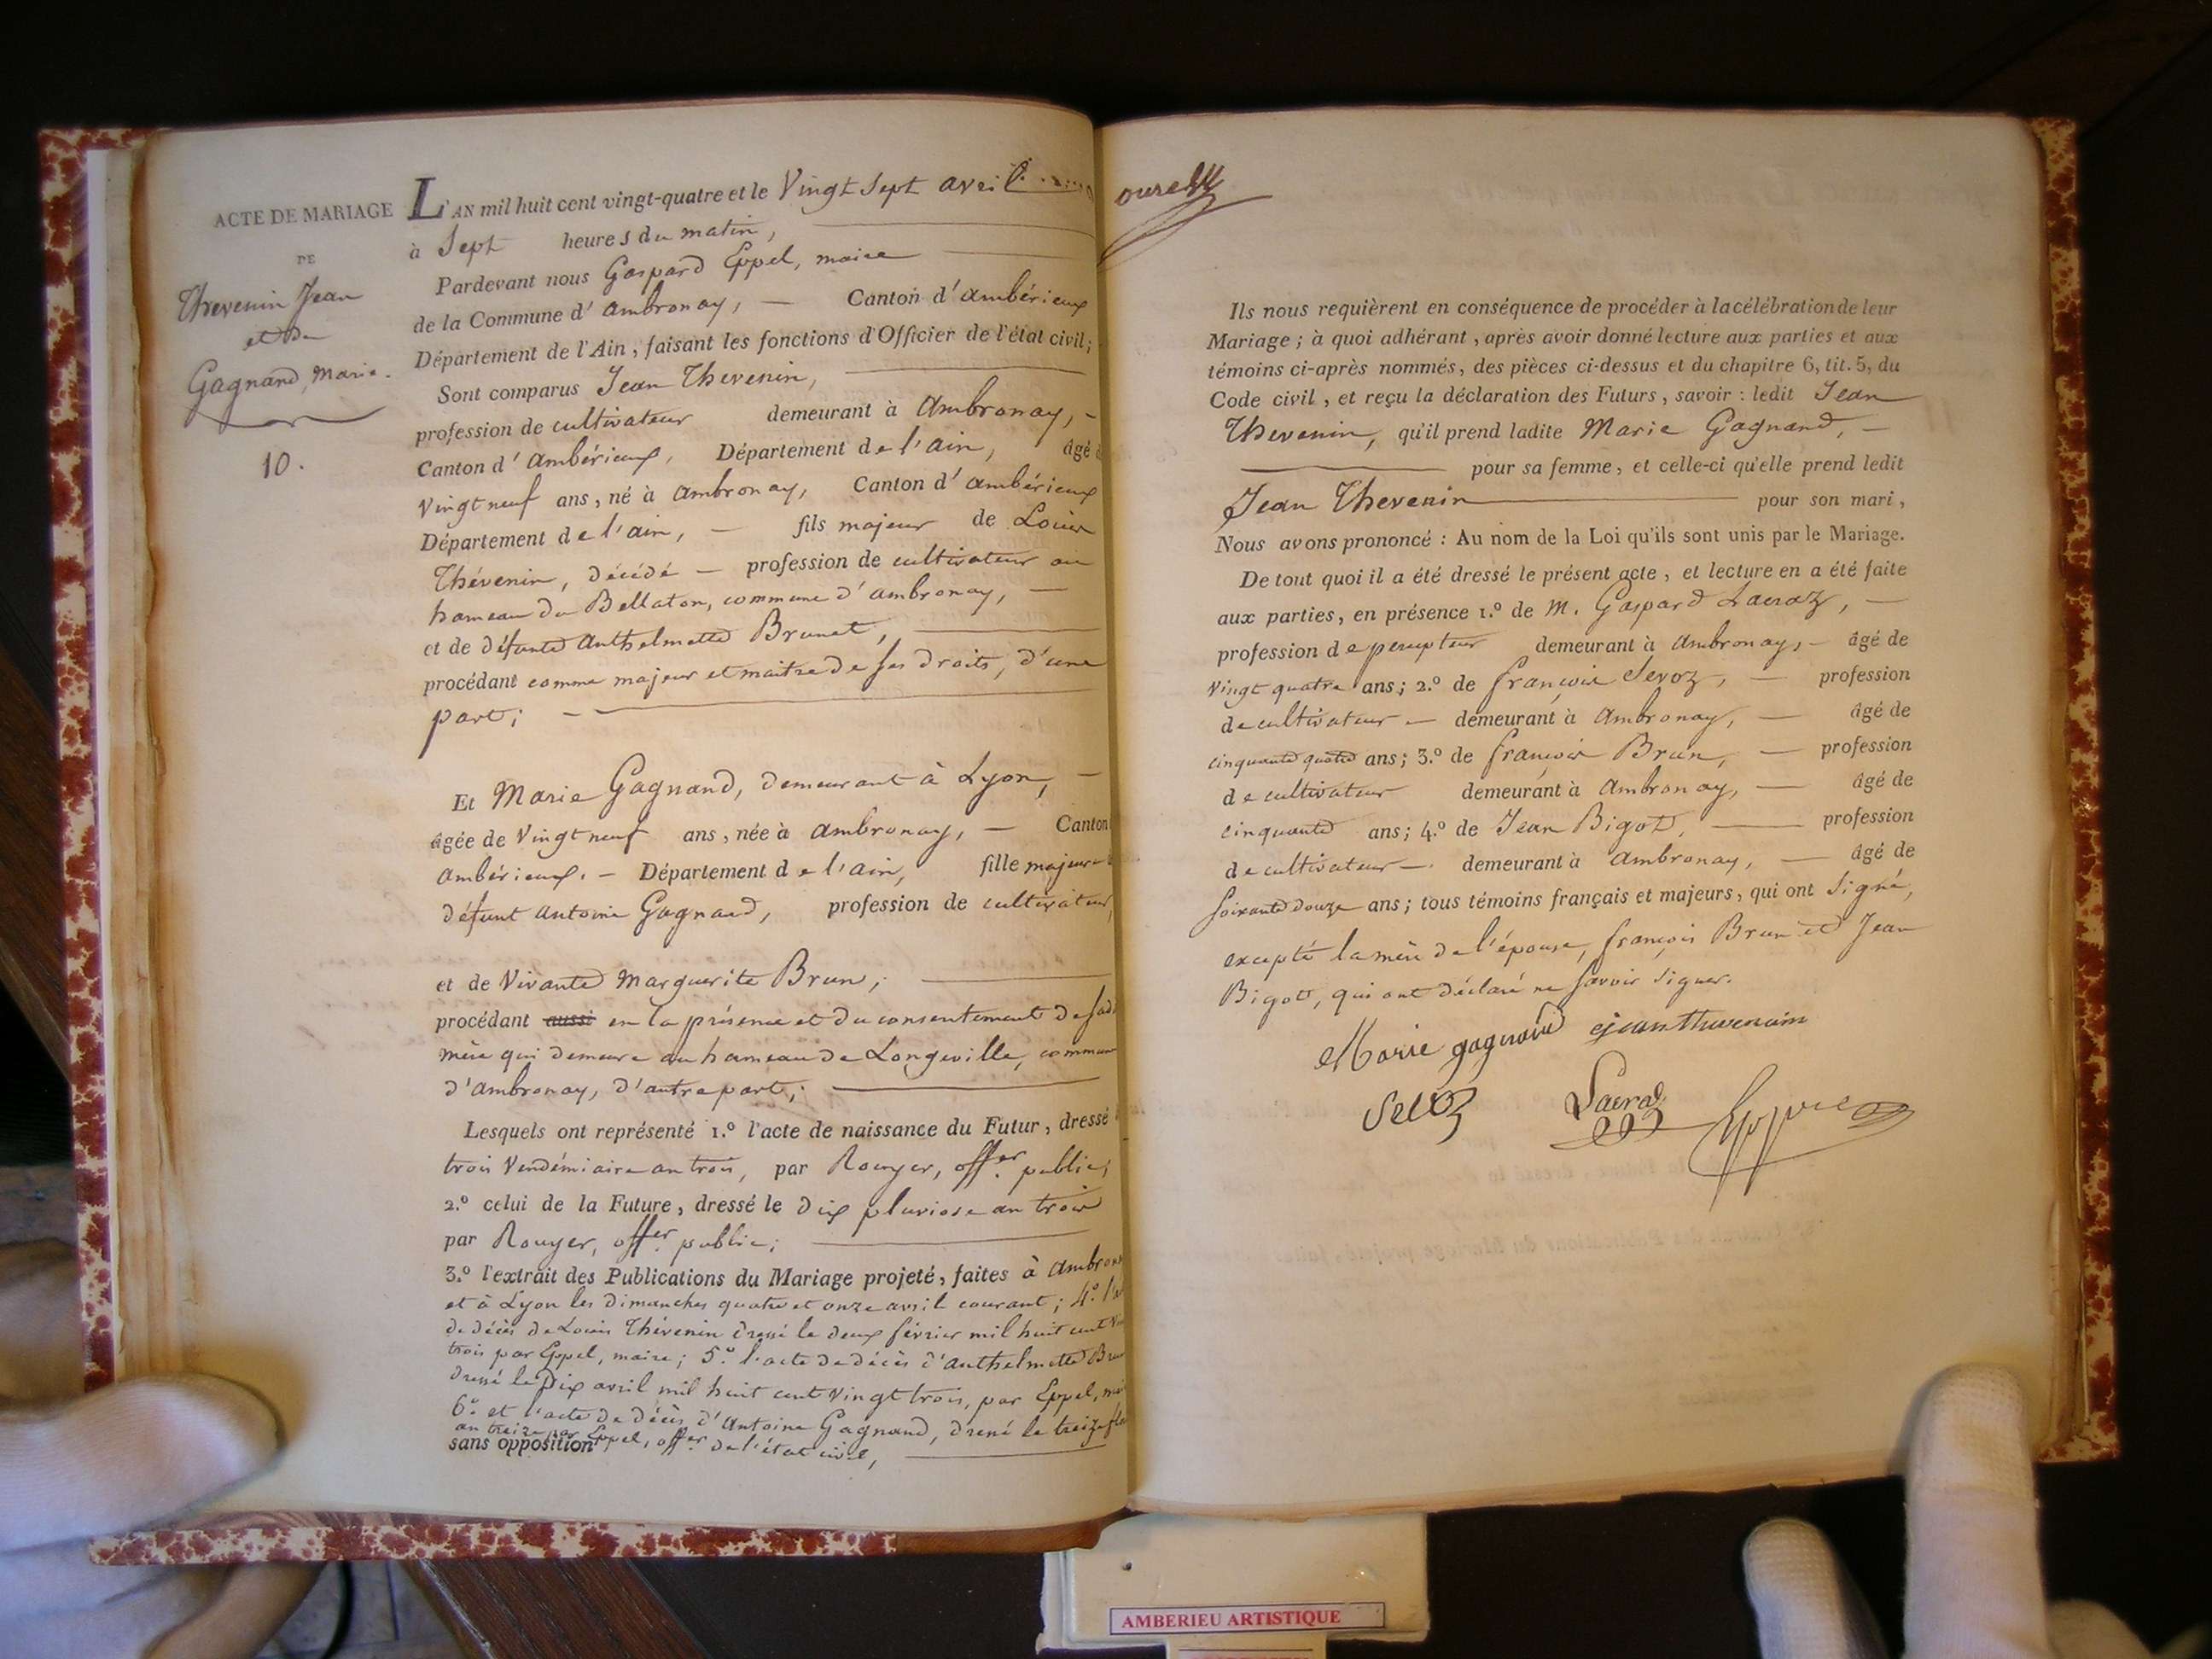 ACTE DE MARIAGE
DE
Thevenin Jean
et de
Gagnand, Marie.
10.
L'AN mil huit cent vingt-quatre et le Vingt Sept avril
à Sept heures du matin,
Pardevant nous Gaspard Eppel, maire
de la Commune d' ambronay, — Canton d' ambérieux
Département de l'Ain, faisant les fonctions d'Officier de l'état civil;
Sont comparus Jean Thevenin,
profession de cultivateur demeurant à Ambronay, -
Canton d' Ambérieux, Département de l'ain, âgé
Vingt neuf ans, né à ambronay, Canton d' ambérieux
Département de l'ain, — fils majeur de Louis
Thévenin, décédé — profession de cultivateur au
hameau du Bellaton, commune d' ambronay, —
et de défunte Anthelmette Brunet,
procédant comme majeur et maitre de ses droits, d'une
part; —
Et Marie Gagnand, demeurant à Lyon, —
âgée de Vingt neuf ans, née à ambronay, — Canton
ambérieux. — Département de l'ain, fille majeure
défunt antoine Gagnand, profession de cultivateur,
et de Vivante Marguerite Brun;
procédant aussi en la présence et du consentement de sad
mère qui demeure au hameau de Longeville, commune
d'ambronay, d'autre part;
Lesquels ont représenté 1.º l'acte de naissance du Futur, dressé
trois Vendémiaire an trois, par Rouyer, offer. public;
2.º celui de la Future, dressé le dix pluviose an trois
par Rouyer, offer. public;
3.º l'extrait des Publications du Mariage projeté, faites à Ambron
et à Lyon les dimanches quatre et onze avril courant; 4.º l'a
de décès de Louis Thévenin dressé le deux février mil huit cent
trois par Eppel, maire; 5.º l'acte de décès d'anthelmette Brun
dressé le Dix avril mil huit cent vingt trois, par Eppel, mai
6.º et l'acte de décès d'Antoine Gagnand, dressé le treize flo
an treize par Eppel, offer. de l'état civil,
sans opposition
Ils nous requièrent en conséquence de procéder à la célébration de leur
Mariage; à quoi adhérant, après avoir donné lecture aux parties et aux
témoins ci-après nommés, des pièces ci-dessus et du chapitre 6, tit. 5, du
Code civil, et reçu la déclaration des Futurs, savoir: ledit Jean
Thevenin, qu'il prend ladite Marie Gagnand, —
pour sa femme, et celle-ci qu'elle prend ledit
Jean Thevenin pour son mari,
Nous avons prononcé: Au nom de la Loi qu'ils sont unis par le Mariage.
De tout quoi il a été dressé le présent acte, et lecture en a été faite
aux parties, en présence 1.º de M. Gaspard Lacroz, —
profession de percepteur demeurant à Ambronay, — âgé de
Vingt quatre ans; 2.º de françois Sevoz, — profession
de cultivateur — demeurant à Ambronay, — âgé de
cinquante quatre ans; 3.º de françois Brun, — profession
de cultivateur demeurant à Ambronay, — âgé de
cinquante ans; 4.º de Jean Bigot, — profession
de cultivateur — demeurant à Ambronay, — âgé de
soixante douze ans; tous témoins français et majeurs, qui ont Signé,
excepté la mère de l'épouse, françois Brun et Jean
Bigot, qui ont déclaré ne savoir Signer.
Marie gagnand
Eppel
AMBERIEU ARTISTIQUE